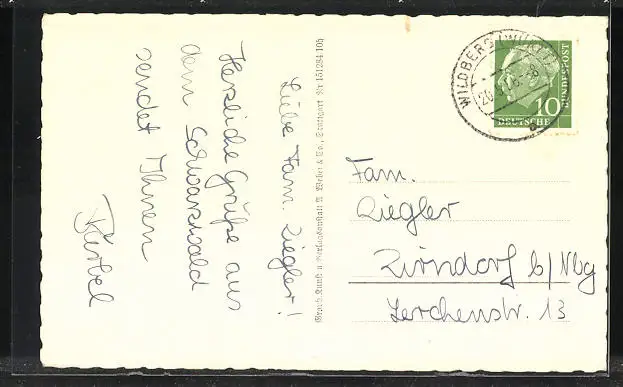 Liebe Fam. Ziegler!
Herzliche Grüße aus
dem Schwarzwald
sendet Ihnen
Bärbel
Stuttgart Nr 151284 10b
WILDBERG (WÜRTT)
10
DEUTSCHE
BUNDESPOST
Fam.
Ziegler
Zirndorf b/Nbg
Lerchenstr. 13